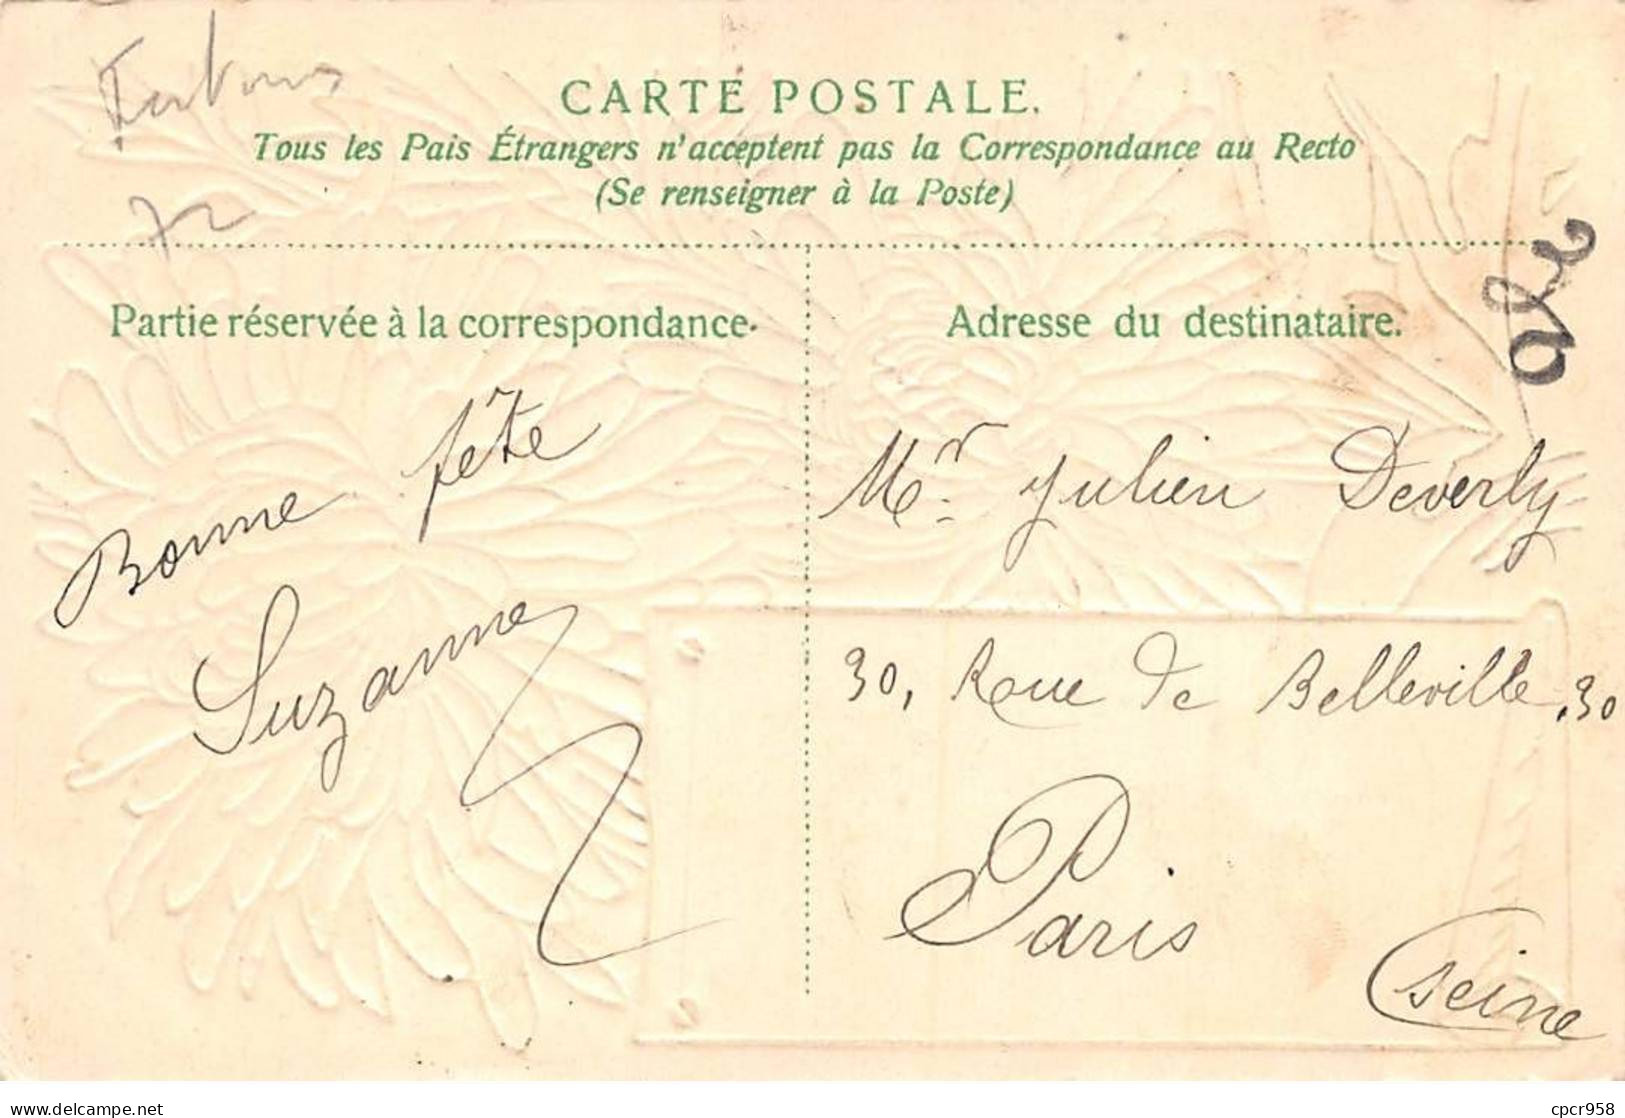 72
CARTE POSTALE.
Tous les Pais Étrangers n'acceptent pas la Correspondance au Recto
(Se renseigner à la Poste)
Partie réservée à la correspondance.
Bonne fête
Suzanne
Adresse du destinataire.
Mr. Julien Deverly
30, Roue de Belleville, 30
Paris
(Seine
delcampe.net
cpcr958